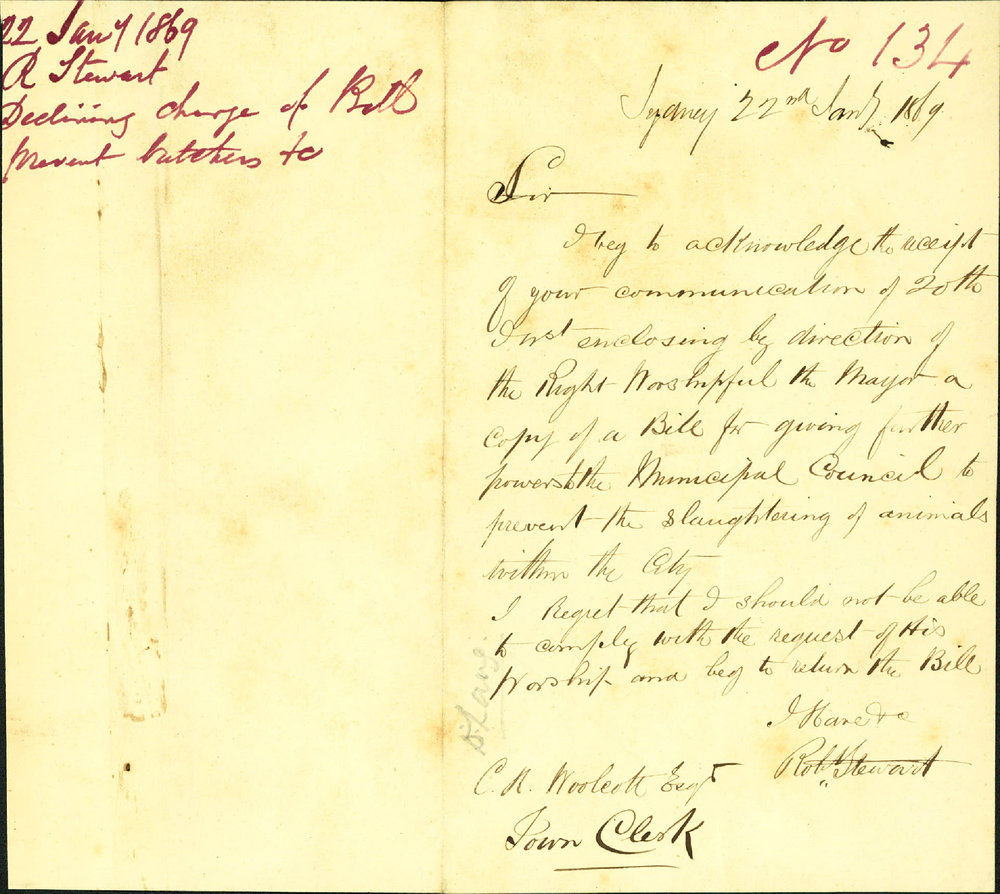 22 Jany 1869
R Stewart
Declining charge of Bill
prevent butchers &c
No 134
Sydney 22nd Jany 1869
Sir
I beg to acknowledge the receipt
of your communication of 20th
Inst enclosing by direction of
the Right Worshipful the Mayor a
copy of a Bill for giving further
powers to the Municipal Council to
prevent the slaughtering of animals
within the City
I Regret that I should not be able
to comply with the request of His
Worship and beg to return the Bill
I Have &c
Robt Stewart
C. H. Woolcott Esqr
Town Clerk